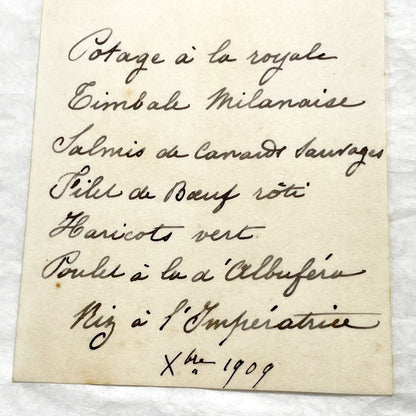 Potage à la royale
Timbale Milanaise
Salmis de Canards Sauvages
Filet de Bœuf rôti
Haricots vert
Poulet à la d'Albuféra
Riz à l'Impératrice
Xbre 1909